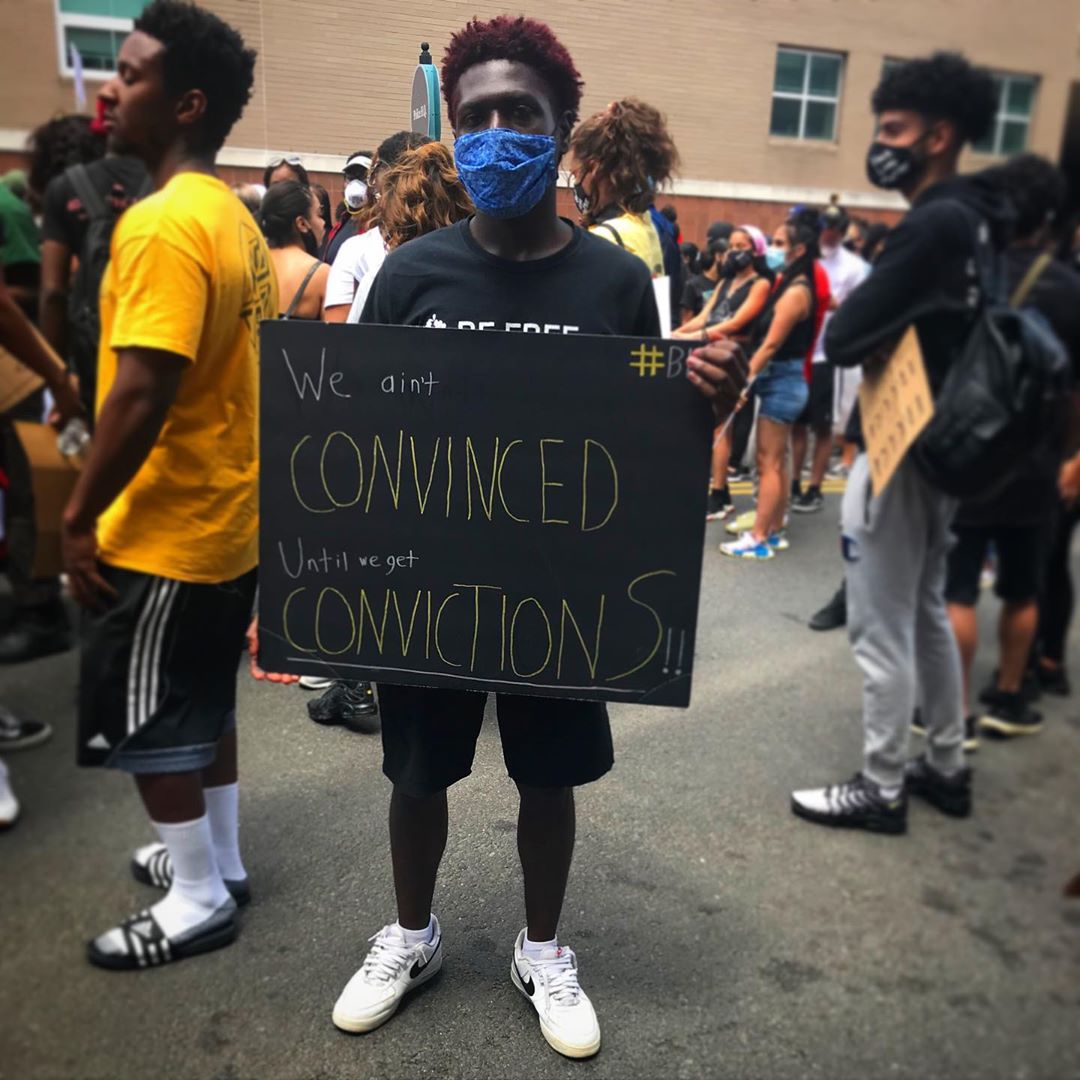 BE FREE
We ain't
CONVINCED
Until we get
CONVICTIONS!!